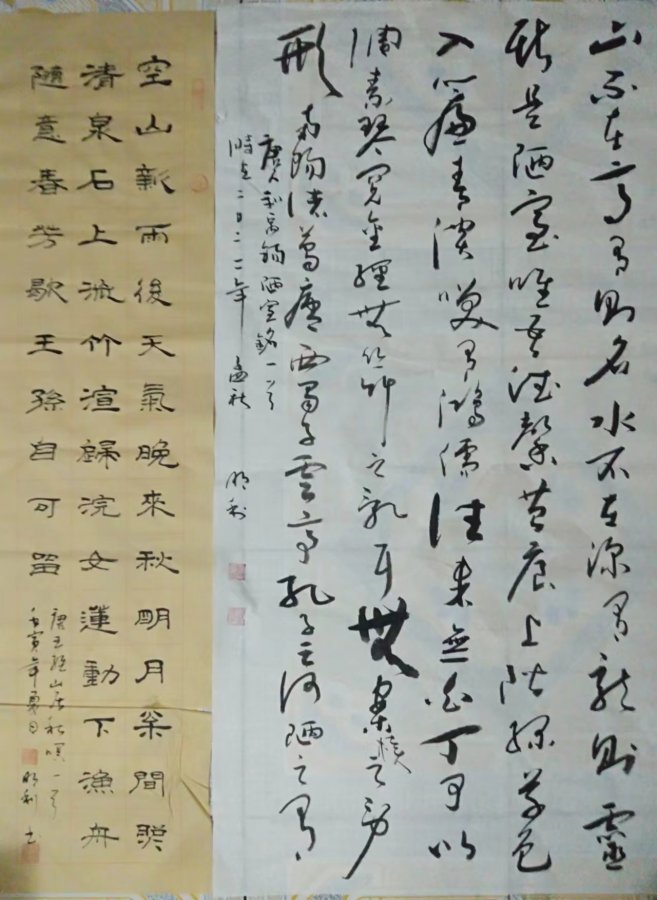 山不在高有則名水不在深有龍則靈
斯是陋室唯吾德馨苔痕上階綠草色
入簾青談笑有鴻儒往來無白丁可以
調素琴閱金經無絲竹之亂耳無案牘之勞
形南陽諸葛廬西蜀子雲亭孔子云何陋之有
唐人劉禹錫陋室銘一首
時在二〇二二年孟秋 明利
空山新雨後天氣晚來秋明月松間照
清泉石上流竹渲歸浣女蓮動下漁舟
隨意春芳歇王孫自可留
唐王維山居秋暝一首
壬寅年夏月 明利书